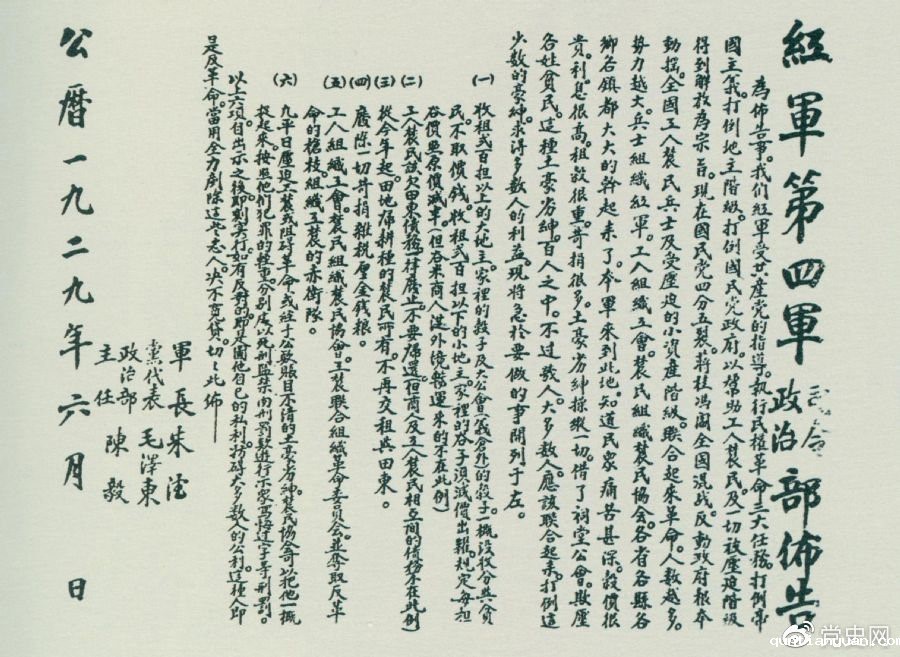 紅軍第四軍司令政治部佈告
為佈告事。我們紅軍受共產党的指導。執行民權革命三大任務。打倒帝
國主義。打倒地主階級。打倒國民党政府。以幫助工人農民。及一切被壓迫階級
得到解放為宗旨。現在國民党四分五裂。蔣桂馮閻全國混战。反動政府根本
動搖。全國工人農民兵士及受壓迫的小資產階級。聯合起來革命。人数越多。
势力越大。兵士組織紅軍。工人組織工會。農民組織農民協会。各省各縣各
鄉各鎮都大大的幹起來了。本軍來到此地。知道民衆痛苦甚深。穀價很
貴。利息很高。租穀很重。苛捐很多。土豪劣紳操縱一切。借了祠堂公會。欺壓
各姓貧民。這種土豪劣紳。百人之中。不过数人。大多数人。應該联合起來。打倒這
少数的豪紳。求得多数人的利益。現將急於要做的事開列于左。
(一)收租弍百担以上的大地主。家裡的穀子及大公會(義倉外)的穀子。一概没收分與貧
民。不取價钱。收租弍百担以下的小地主。家裡的谷子須減價出糶。規定每担
谷價照原價減半。(但谷米商人從外境辦運來的不在此例)
(二)工人農民該欠田東債務。一律廢止。不要歸還。(但商人及工人農民相互間的債務不在此例)
(三)從今年起。田地歸耕種的農民所有。不再交租與田東。
(四)廢除一切苛捐雜税厘金钱粮。
(五)工人組織工會。農民組織農民協會。工農联合組織革命委員会。並奪取反革
命的槍枝組織工農的赤衛隊。
(六)凡平日壓迫工農或阻碍革命。或经手公款賬目不清的土豪劣紳。農民協會可以把他一概
捉起來。按照他们犯罪的輕重。分别處以死刑監禁肉刑罰款遊行示家写悔过字等刑罰。
以上六項自出示之後。即刻实行。如有反對的。即是圖他自已的私利。妨碍大多数人的公利。這種人即
是反革命。當用全力剷除這些惡人。决不寬貸。切切此佈
軍長朱德
黨代表毛澤東
政治部主任陳毅
公曆一九二九年六月 日
党史网